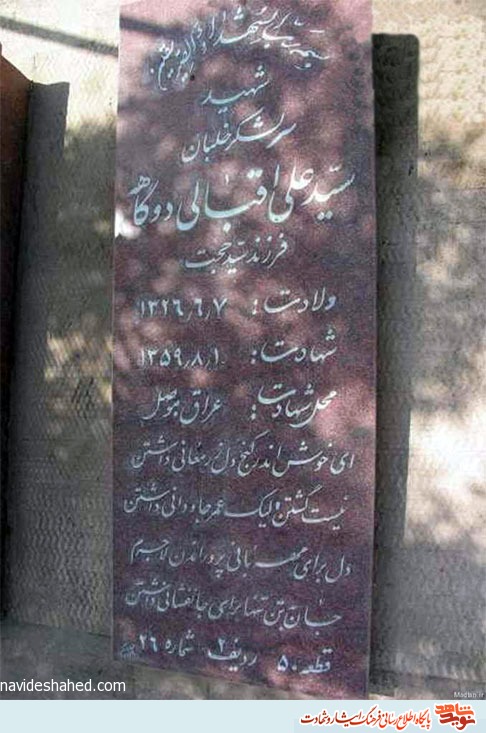 شهید
سرلشکر خلبان
سید علی اقبالی دوگاهه
فرزند سید حجت
ولادت: ۱۳۲۶٫۶٫۷
شهادت: ۱۳۵۹٫۸٫۱
محل شهادت: عراق موصل
ای خوش اندر گنج دل زر معانی داشتن
نیست گشتن ولیک عمر جاودانی داشتن
دل برای مهربانی پروراندن لاجرم
جان به تن تنها برای جانفشانی داشتن
قطعه ۵۰ ردیف ۲ شماره ۲۶
navideshahed.com
نوید شاهد
پایگاه اطلاع رسانی فرهنگ ایثار و شهادت